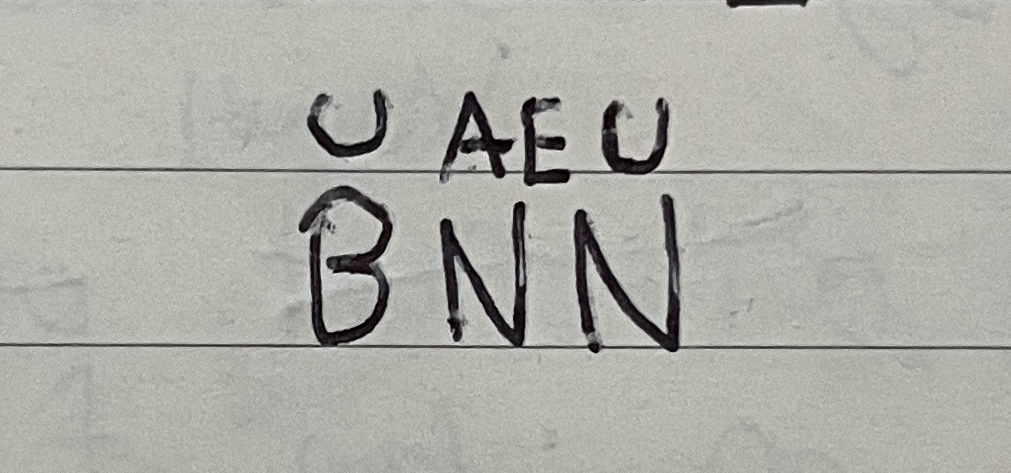 U AEU
BNN